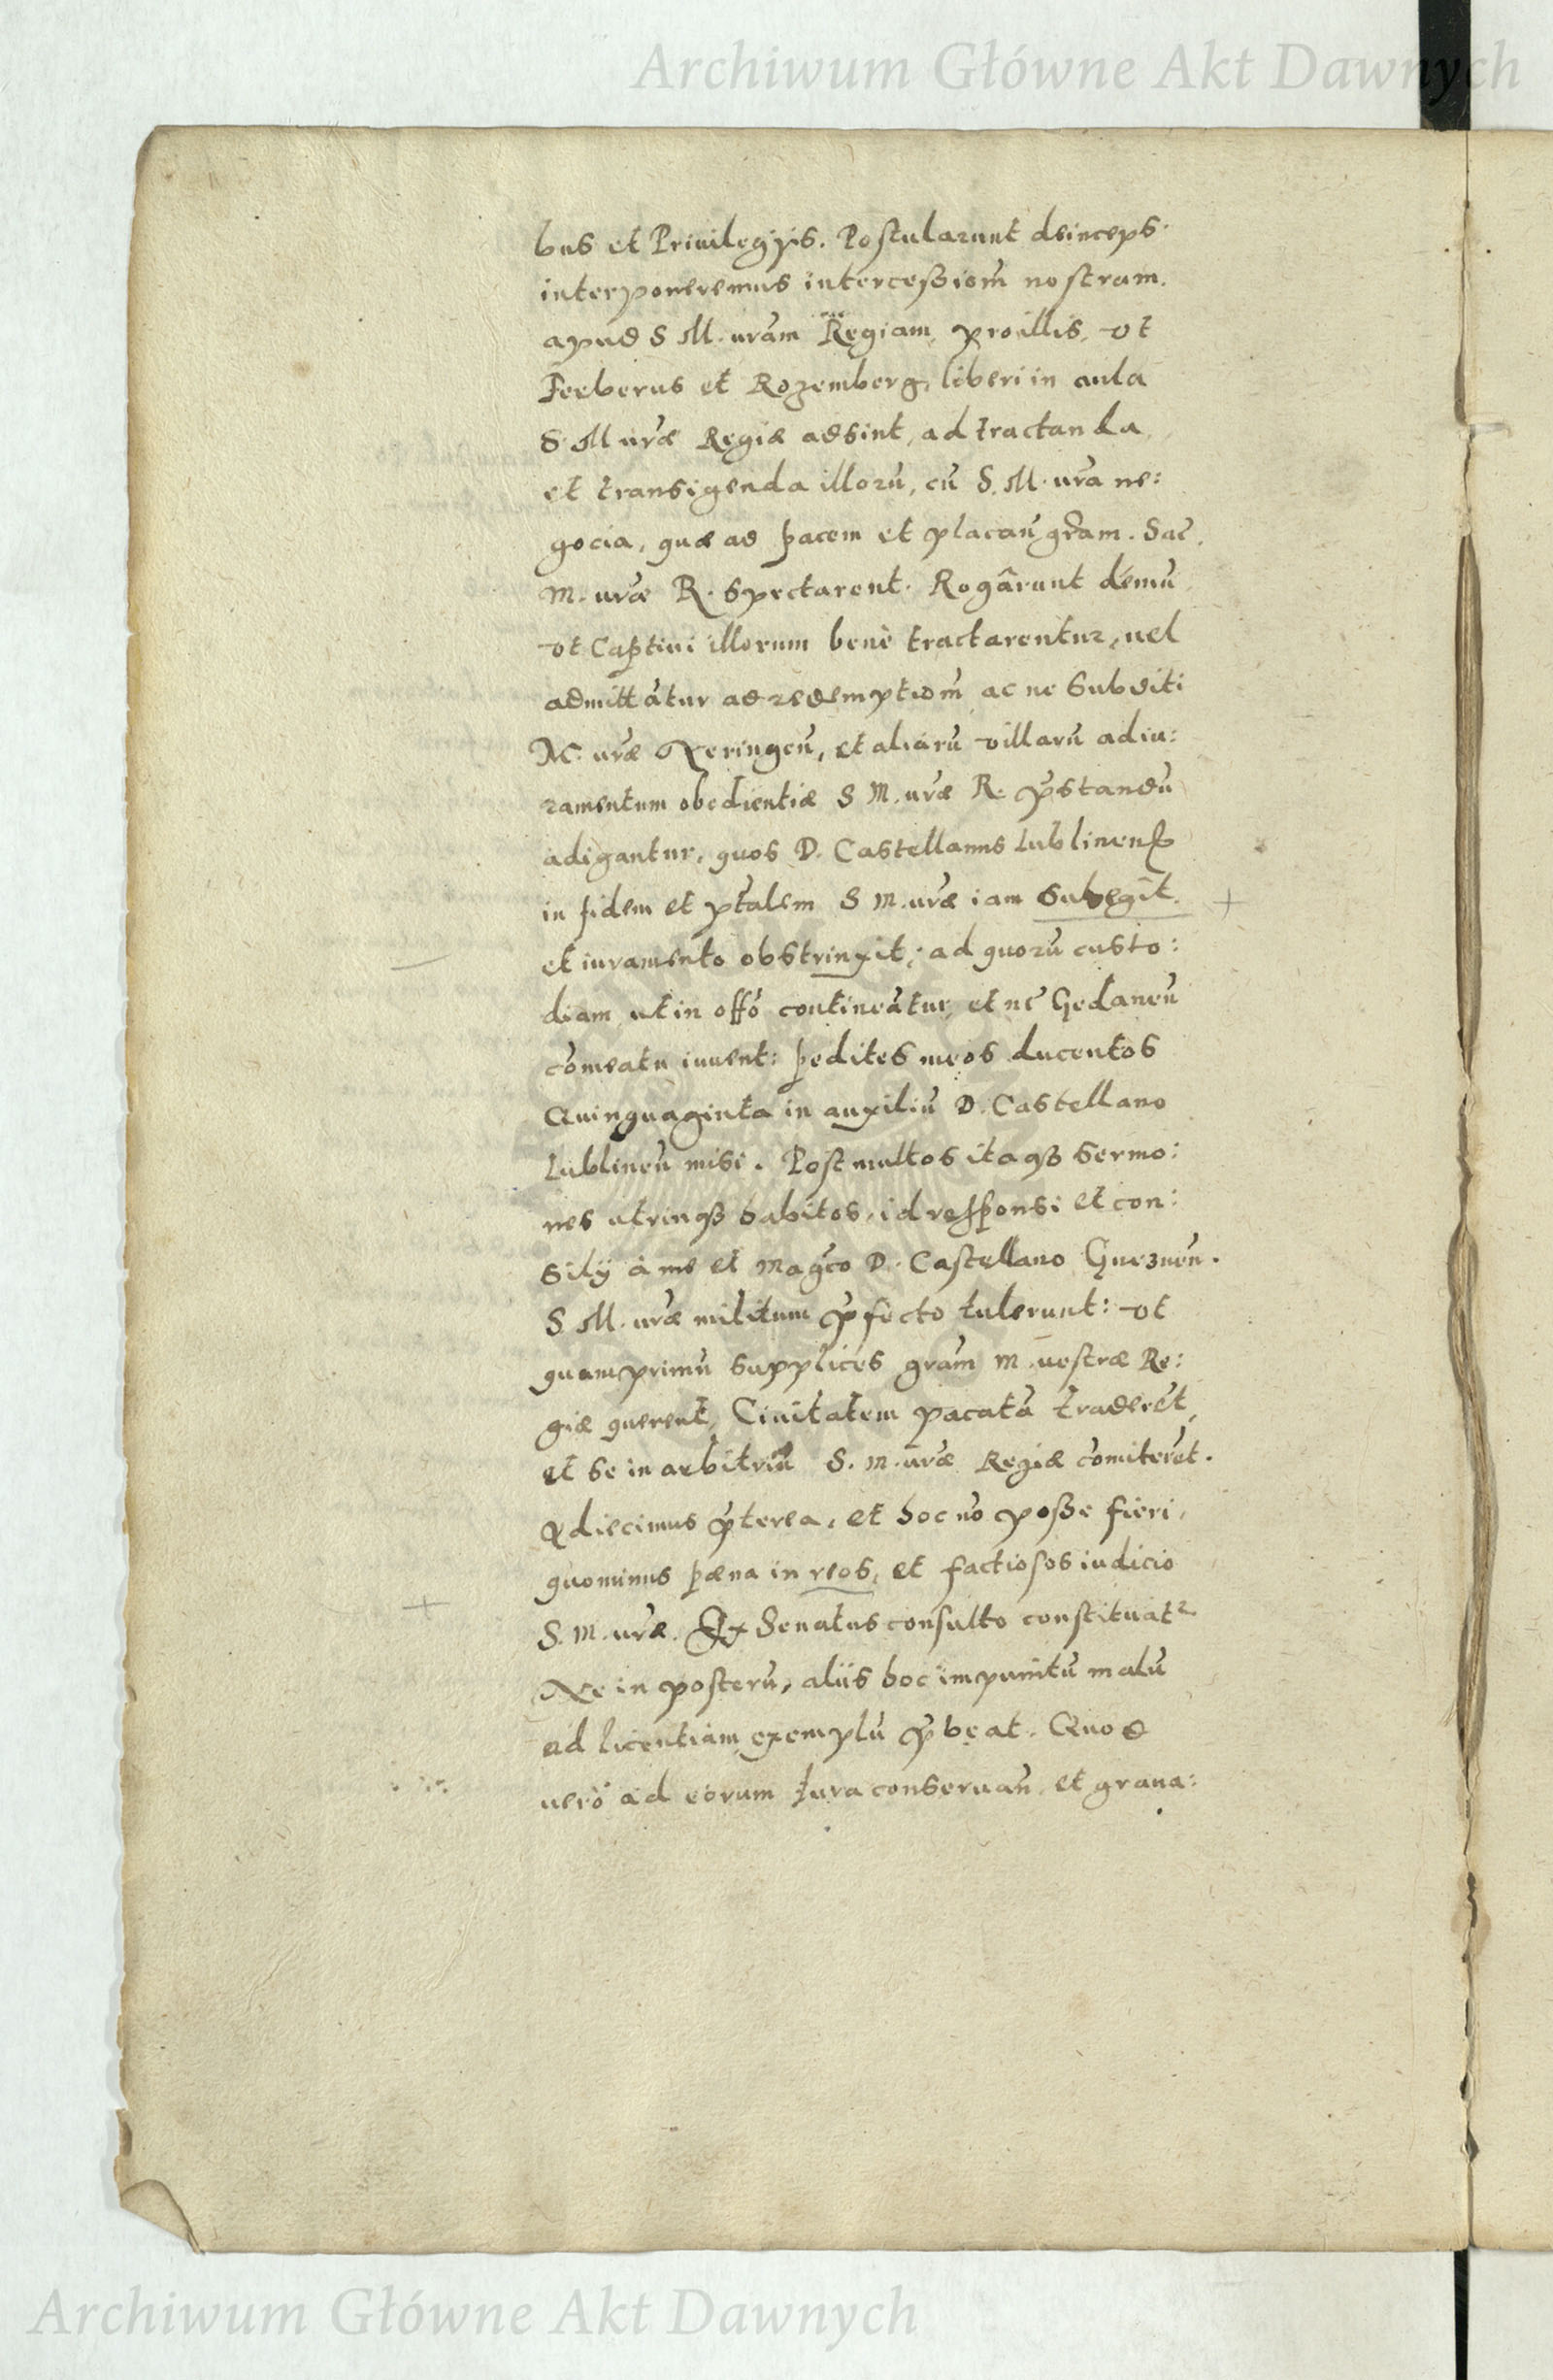 Archiwum Główne Akt Dawnych
bus et Priuilegijs. Postularunt deinceps
interponeremus intercessiom̃ nostram.
apud S M. uram̃ Regiam, pro illis, vt
Feeberus et Rozemberg, liberi in aula
S. M uræ̃ Regiæ adsint, ad tractanda
et transigenda illorũ, cũ S. M. ura̴ ne:
gocia, quæ ad pacem et placan̄ gr̃am. Sac.
M. uræ̃ R. spectarent. Rogârunt demũ
vt Captiui illorum benè tractarentur, uel
admittãtur ad redemptiom̃ ac ne Subditi
M. uræ̃ Neringeñ, et aliarũ villarũ ad iu:
ramentum obedientiæ S M. uræ̃ R. p̃standũ
adigantur, quos D. Castellanus Lublinens̃
in fidem et p̃tatem S M. uræ̃ iam Subegit.
et iuramento obstrinxit; ad quorũ custo:
diam ut in offo̴ contineãtur, et ne Gedaneñ
com̃eatu iuuent: pedites meos ducentos
Quinquaginta in auxiliũ D. Castellano
Lublineñ misi. Post multos itaqȝ sermo:
nes utrinqȝ habitos, id responsi et con:
silij à me et Magc̃o D. Castellano Gneznen̄.
S. M. uræ̃ militum p̃fecto tulerunt: vt
quamprimũ supplices gram̃ M. uestræ Re:
giæ querent, Ciuitatem pacatã traderẽt,
et se in arbitriũ S. M. uræ̃ Regiæ com̃iterẽt.
Adiecimus p̃terea, et hoc nõ posse fieri,
quominus pæna in reos, et factiosos iudicio
S. M. uræ̃. Ex Senatus consulto constituatr
Ne in posterũ, aliis hoc impunitũ malũ
ad licentiam exemplũ p̃beat. Quod
uerò ad eorum Jura conseruan̄ et graua:
Archiwum Główne Akt Dawnych